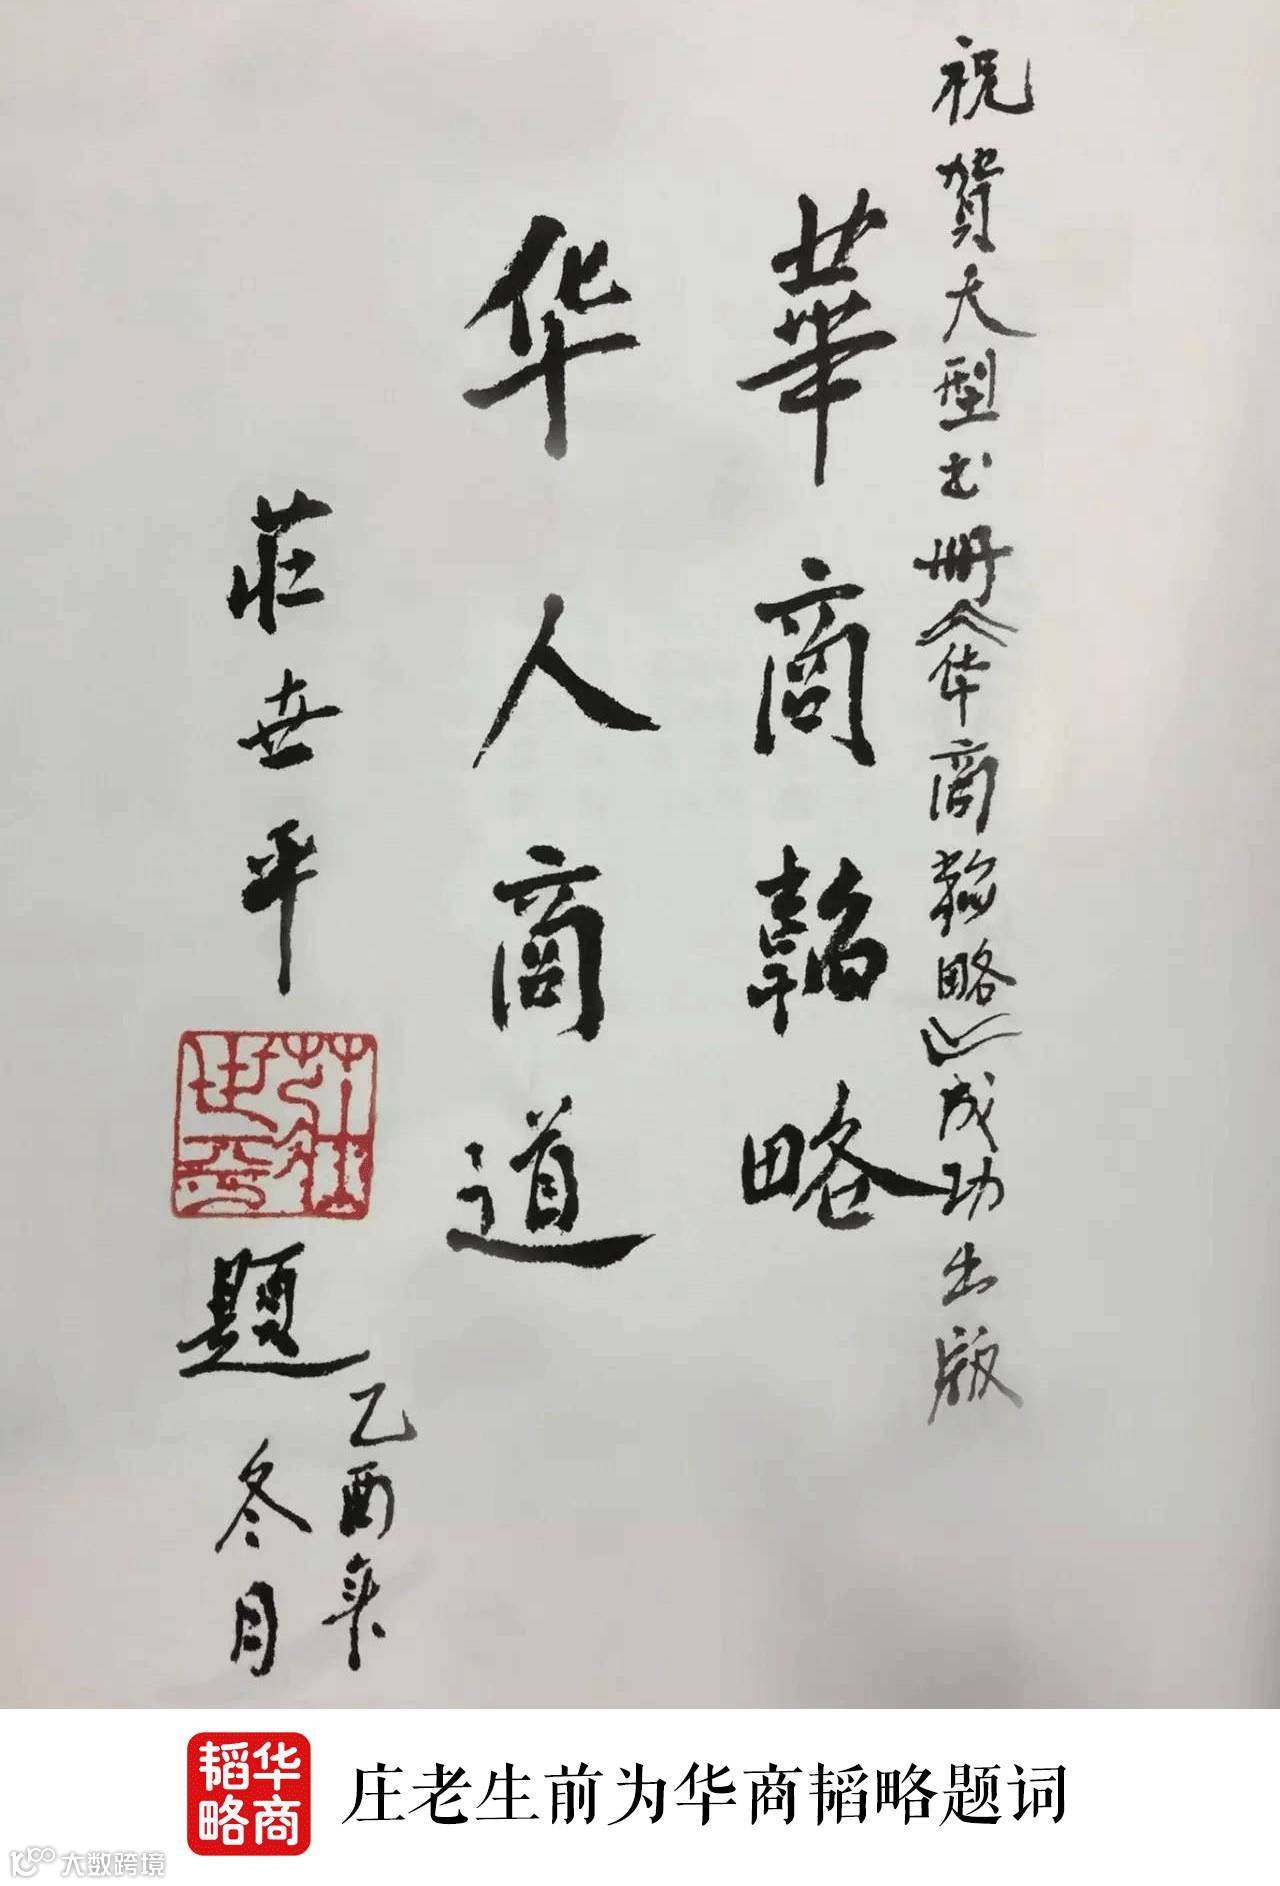 祝贺大型书册《华商韬略》成功出版
華商韜略
华人商道
莊世平
莊世平
題
乙酉年
冬月
华商韬略
庄老生前为华商韬略题词
大数跨境